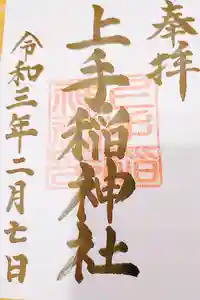 奉拝
上手稲神社
令和三年二月七日